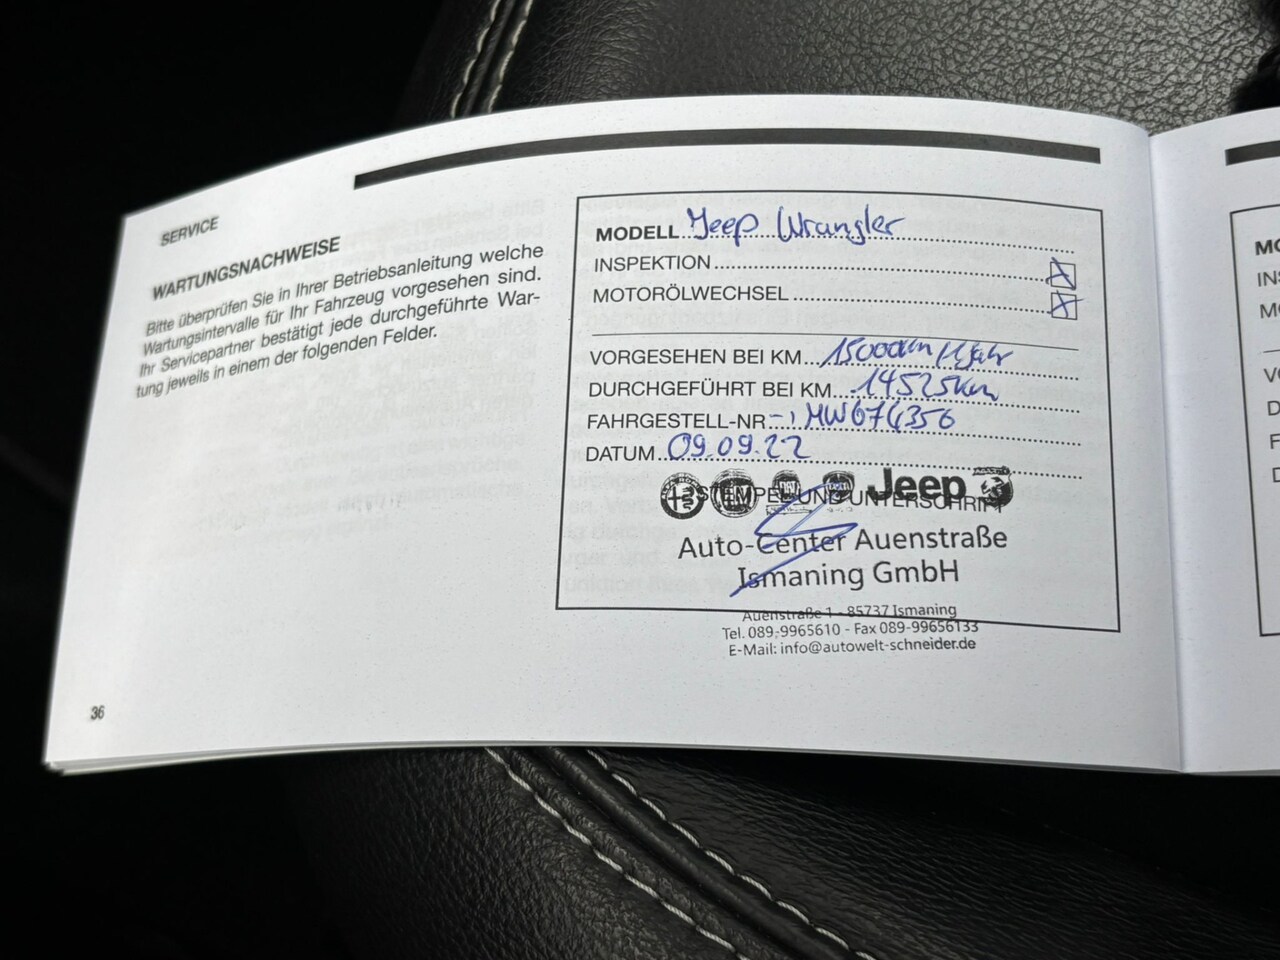 SERVICE
WARTUNGSNACHWEISE
Bitte überprüfen Sie in Ihrer Betriebsanleitung welche
Wartungsintervalle für Ihr Fahrzeug vorgesehen sind.
Ihr Servicepartner bestätigt jede durchgeführte War-
tung jeweils in einem der folgenden Felder.
36
MODELL Jeep Wrangler
INSPEKTION
MOTORÖLWECHSEL
VORGESEHEN BEI KM 15000km/1Jahr
DURCHGEFÜHRT BEI KM 14525km
FAHRGESTELL-NR MW674356
DATUM 09.09.22
Jeep
STEMPEL UND UNTERSCHRIFT
Auto-Center Auenstraße
Ismaning GmbH
Auenstraße 1 - 85737 Ismaning
Tel. 089-9965610 - Fax 089-99656133
E-Mail: info@autowelt-schneider.de